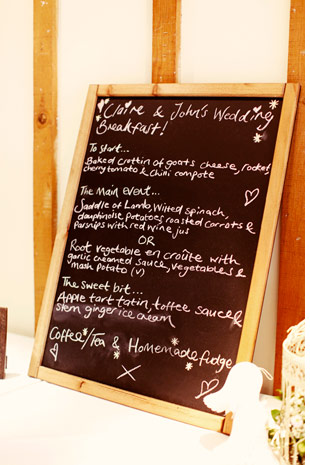 Claire & John's Wedding
Breakfast!
To start...
Baked Crottin of goats cheese, rocket,
cherry tomato & chilli compote
The Main Event...
Saddle of Lamb, Wilted spinach,
dauphinoise potatoes, roasted carrots &
Parsnips with red wine jus
OR
Root vegetable en croûte with
garlic creamed sauce, vegetables &
mash Potato (v)
The Sweet bit...
Apple tart tatin, toffee sauce &
stem ginger ice cream
Coffee/Tea & Homemade fudge